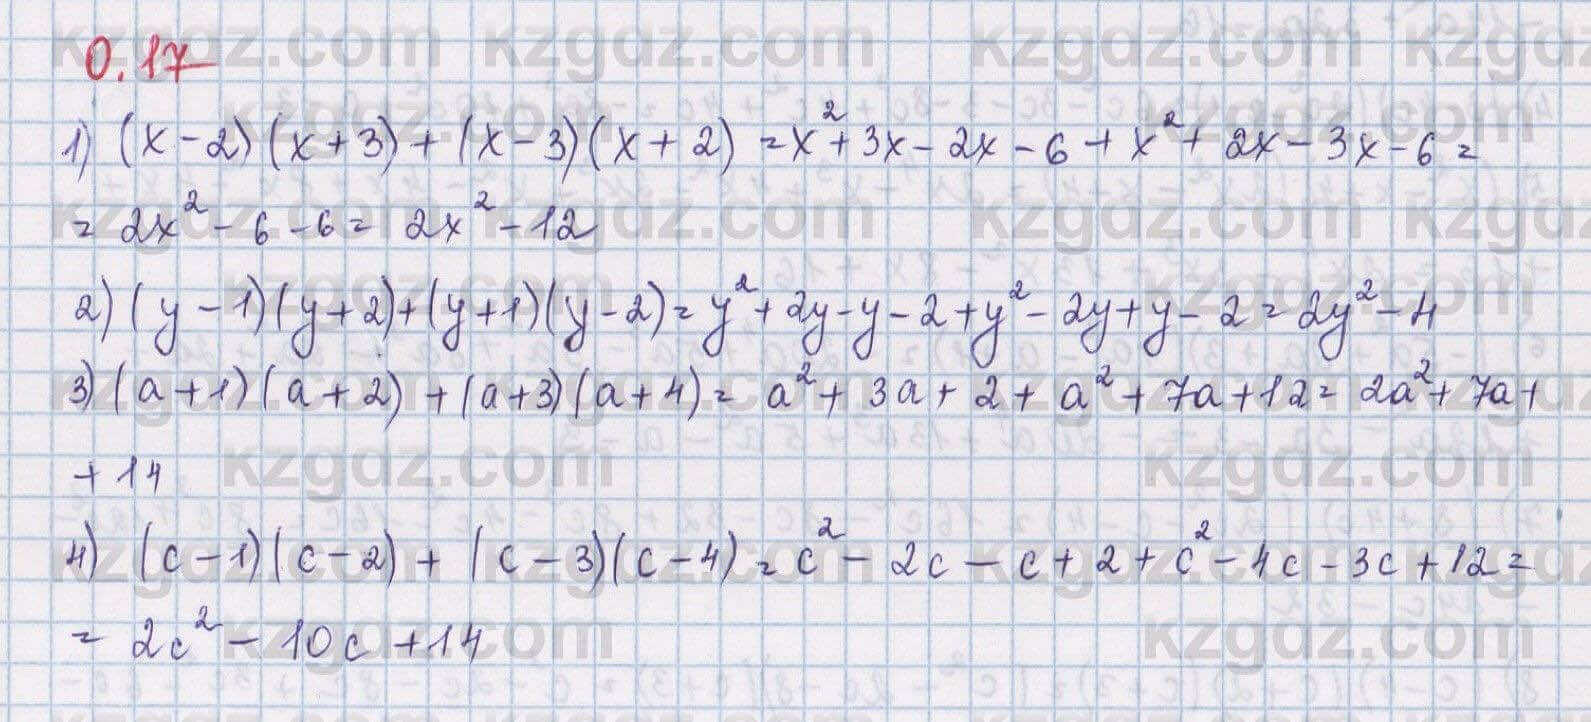 0.17
1) (x-2)(x+3)+(x-3)(x+2)=x²+3x-2x-6+x²+2x-3x-6=
=2x²-6-6=2x²-12
2) (y-1)(y+2)+(y+1)(y-2)=y²+2y-y-2+y²-2y+y-2=2y²-4
3) (a+1)(a+2)+(a+3)(a+4)=a²+3a+2+a²+7a+12=2a²+7a+
+14
4) (c-1)(c-2)+(c-3)(c-4)=c²-2c-c+2+c²-4c-3c+12=
=2c²-10c+14
kzgdz.com